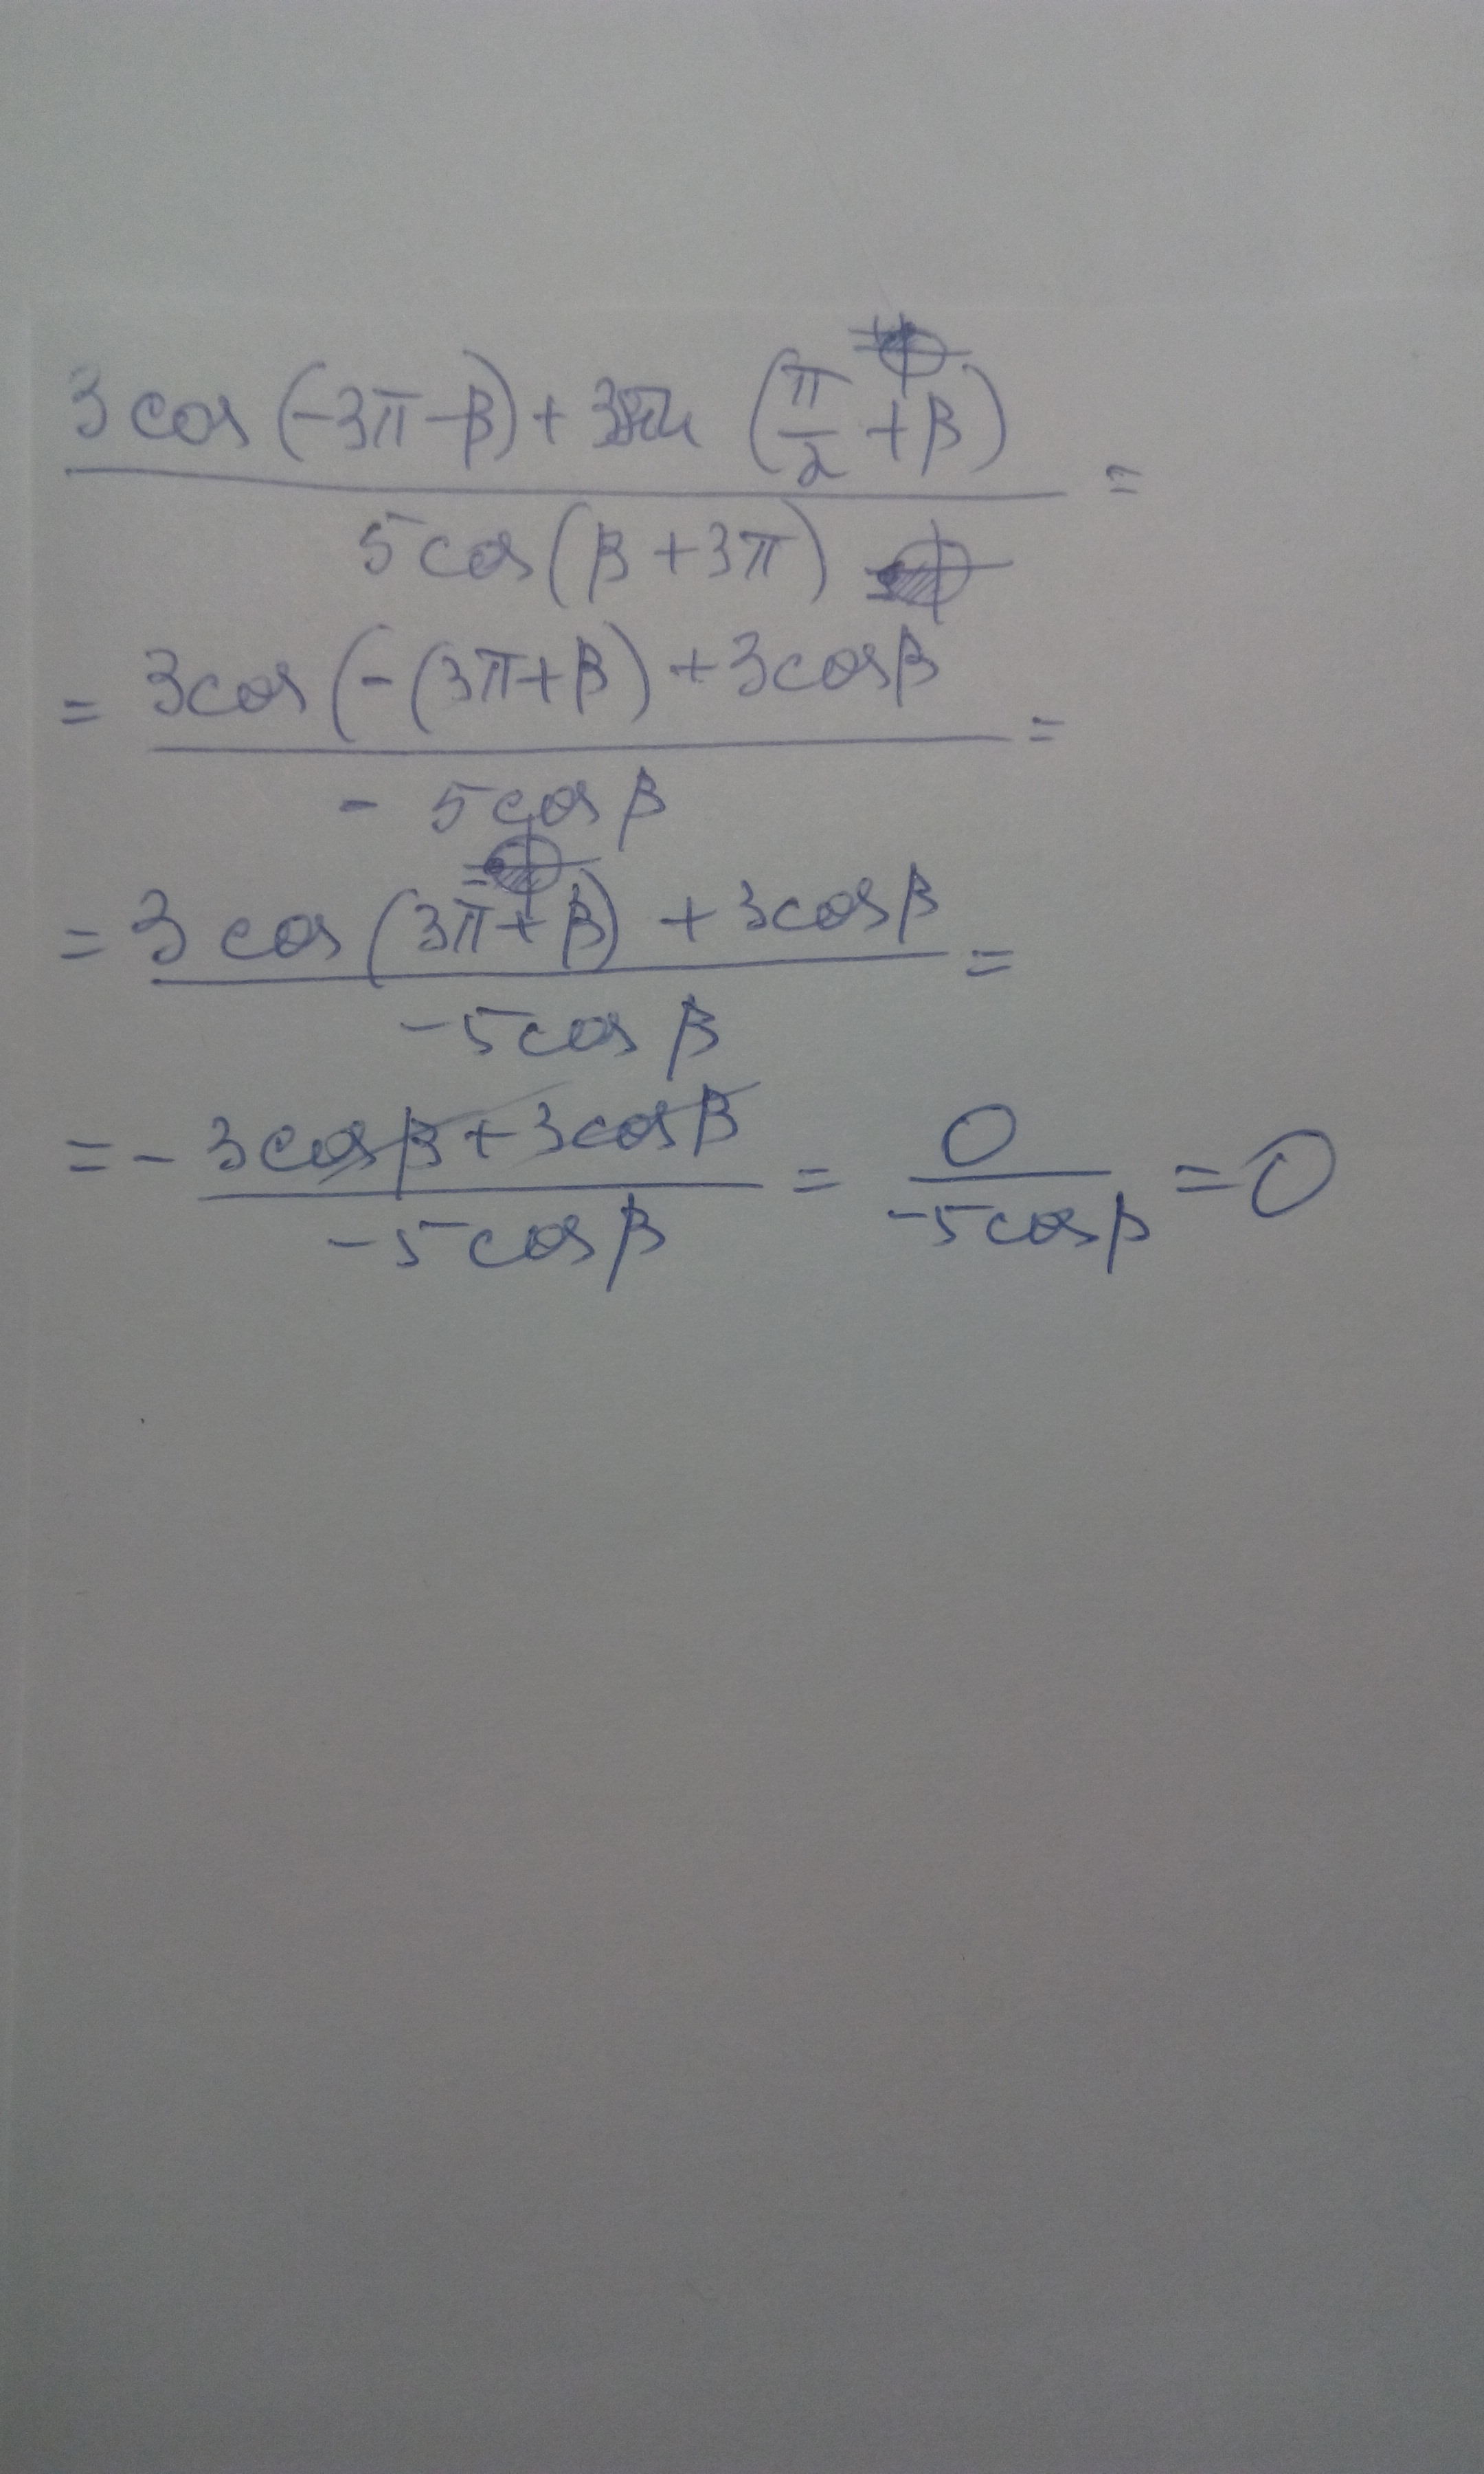 3cos(-3π-β)+3sin(π/2+β) =
5cos(β+3π)
= 3cos(-(3π+β)+3cosβ =
-5cosβ
= 3cos(3π+β)+3cosβ =
-5cosβ
= -3cosβ+3cosβ = 0 = 0
-5cosβ -5cosβ